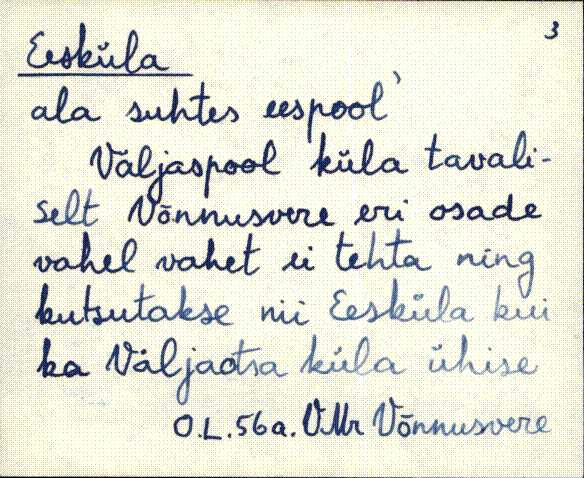 3
Eesküla
ala suhtes eespool'
Väljaspool küla tavali-
selt Võnnusvere eri osade
vahel vahet ei tehta ning
kutsutakse nii Eesküla kui
ka Väljaotsa küla ühise
O.L. 56a. VMr Võnnusvere